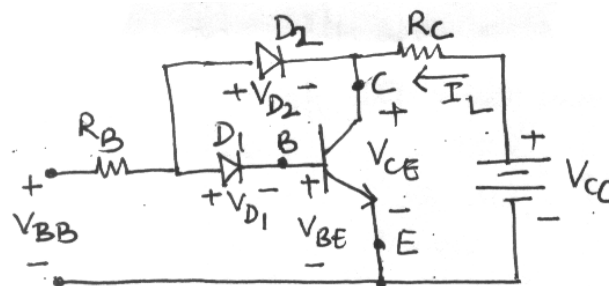 D2
RC
+ VD2 -
C
IL
+
RB
D1
B
VCE
+
VCC
+
+ VD1 -
+
VBB
VBE
-
-
E
-
-